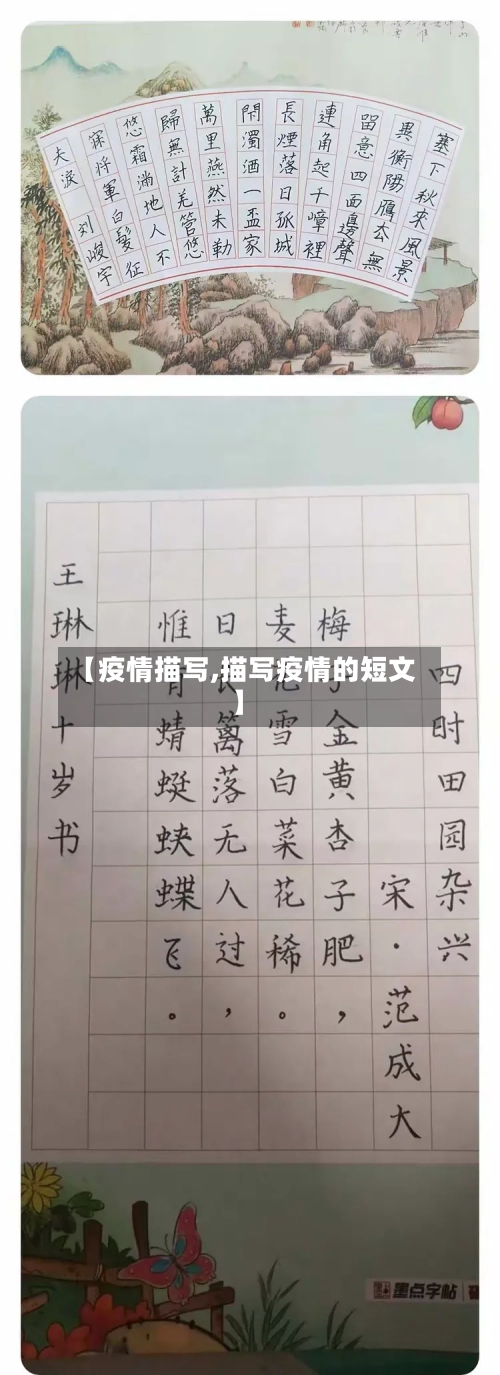 塞下秋來風景
異衡陽鴈去無
留意四面邊聲
連角起千嶂裡
長煙落日孤城
閉濁酒一盃家
萬里燕然未勒
歸無計羌管悠
悠霜滿地人不
寐將軍白髮征
夫淚 刘峻宇
【疫情描写,描写疫情的短文
】
四时田园杂兴
宋·范成大
梅金黄杏子肥，
麦雪白菜花稀。
日篱落无人过，
惟蜻蜓蛱蝶飞。
王琳琳十岁书
墨点字帖